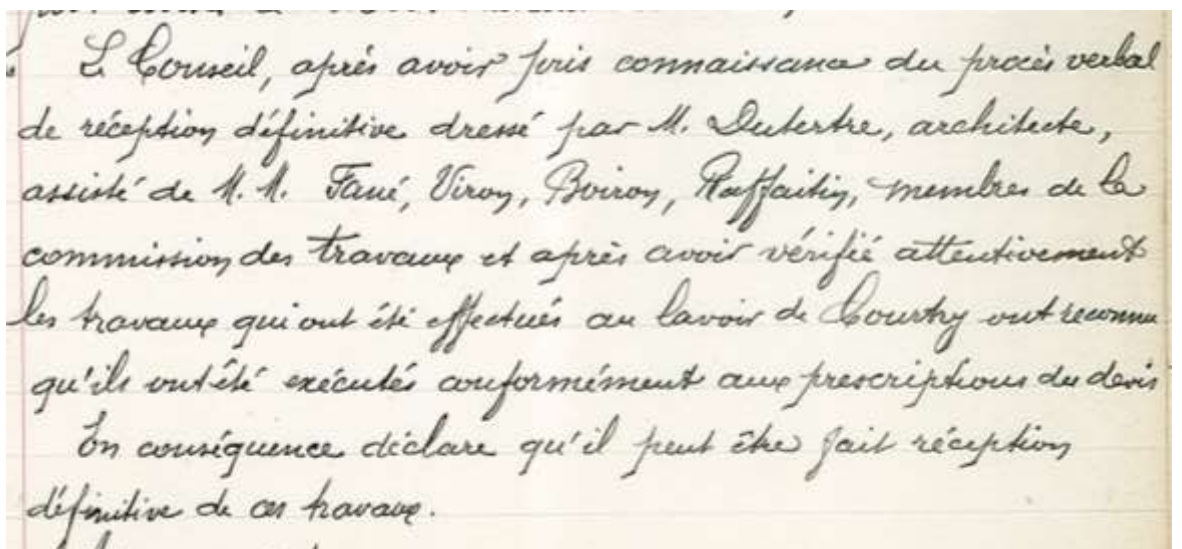 Le Conseil, après avoir pris connaissance du procès verbal
de réception définitive dressé par M. Dutertre, architecte,
assisté de M. M. Fané, Viron, Boiron, Raffaitin, membres de la
commission des travaux et après avoir vérifié attentivement
les travaux qui ont été effectués au lavoir de Courtry ont reconnu
qu'ils ont été exécutés conformément aux prescriptions du devis
En conséquence déclare qu'il peut être fait réception
définitive de ces travaux.